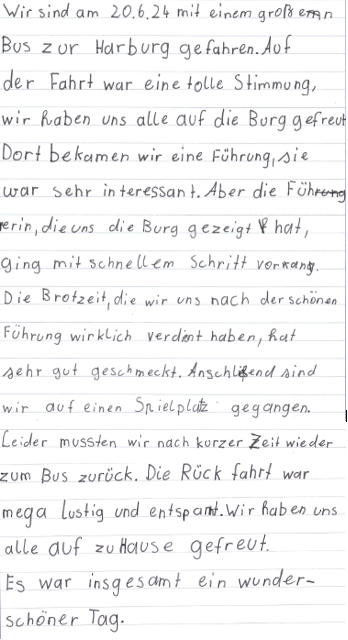 Wir sind am 20.6.24 mit einem großen
Bus zur Harburg gefahren. Auf
der Fahrt war eine tolle Stimmung,
wir haben uns alle auf die Burg gefreut
Dort bekamen wir eine Führung, sie
war sehr interessant. Aber die Führ
erin, die uns die Burg gezeigt hat,
ging mit schnellem Schritt voran.
Die Brotzeit, die wir uns nach der schönen
Führung wirklich verdint haben, hat
sehr gut geschmeckt. Anschließend sind
wir auf einen Spielplatz gegangen.
Leider mussten wir nach kurzer Zeit wieder
zum Bus zurück. Die Rück fahrt war
mega lustig und entspant. Wir haben uns
alle auf zu Hause gefreut.
Es war insgesamt ein wunder-
schöner Tag.